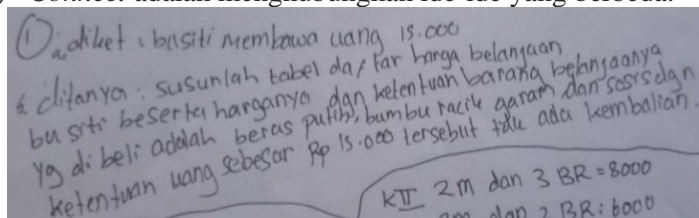 Connect adalah menghubungkan ide-ide yang berbeda.
① a. diket : bu siti membawa uang 15.000
ditanya : susunlah tabel daftar harga belanjaan
bu siti beserta harganya dan ketentuan barang belanjaanya
yg di beli adalah beras putih, bumbu racik garam dan sosis dgn
ketentuan uang sebesar Rp 15.000 tersebut tdk ada kembalian
KII 2m dan 3 BR = 8000
dan 2 BR : 6000